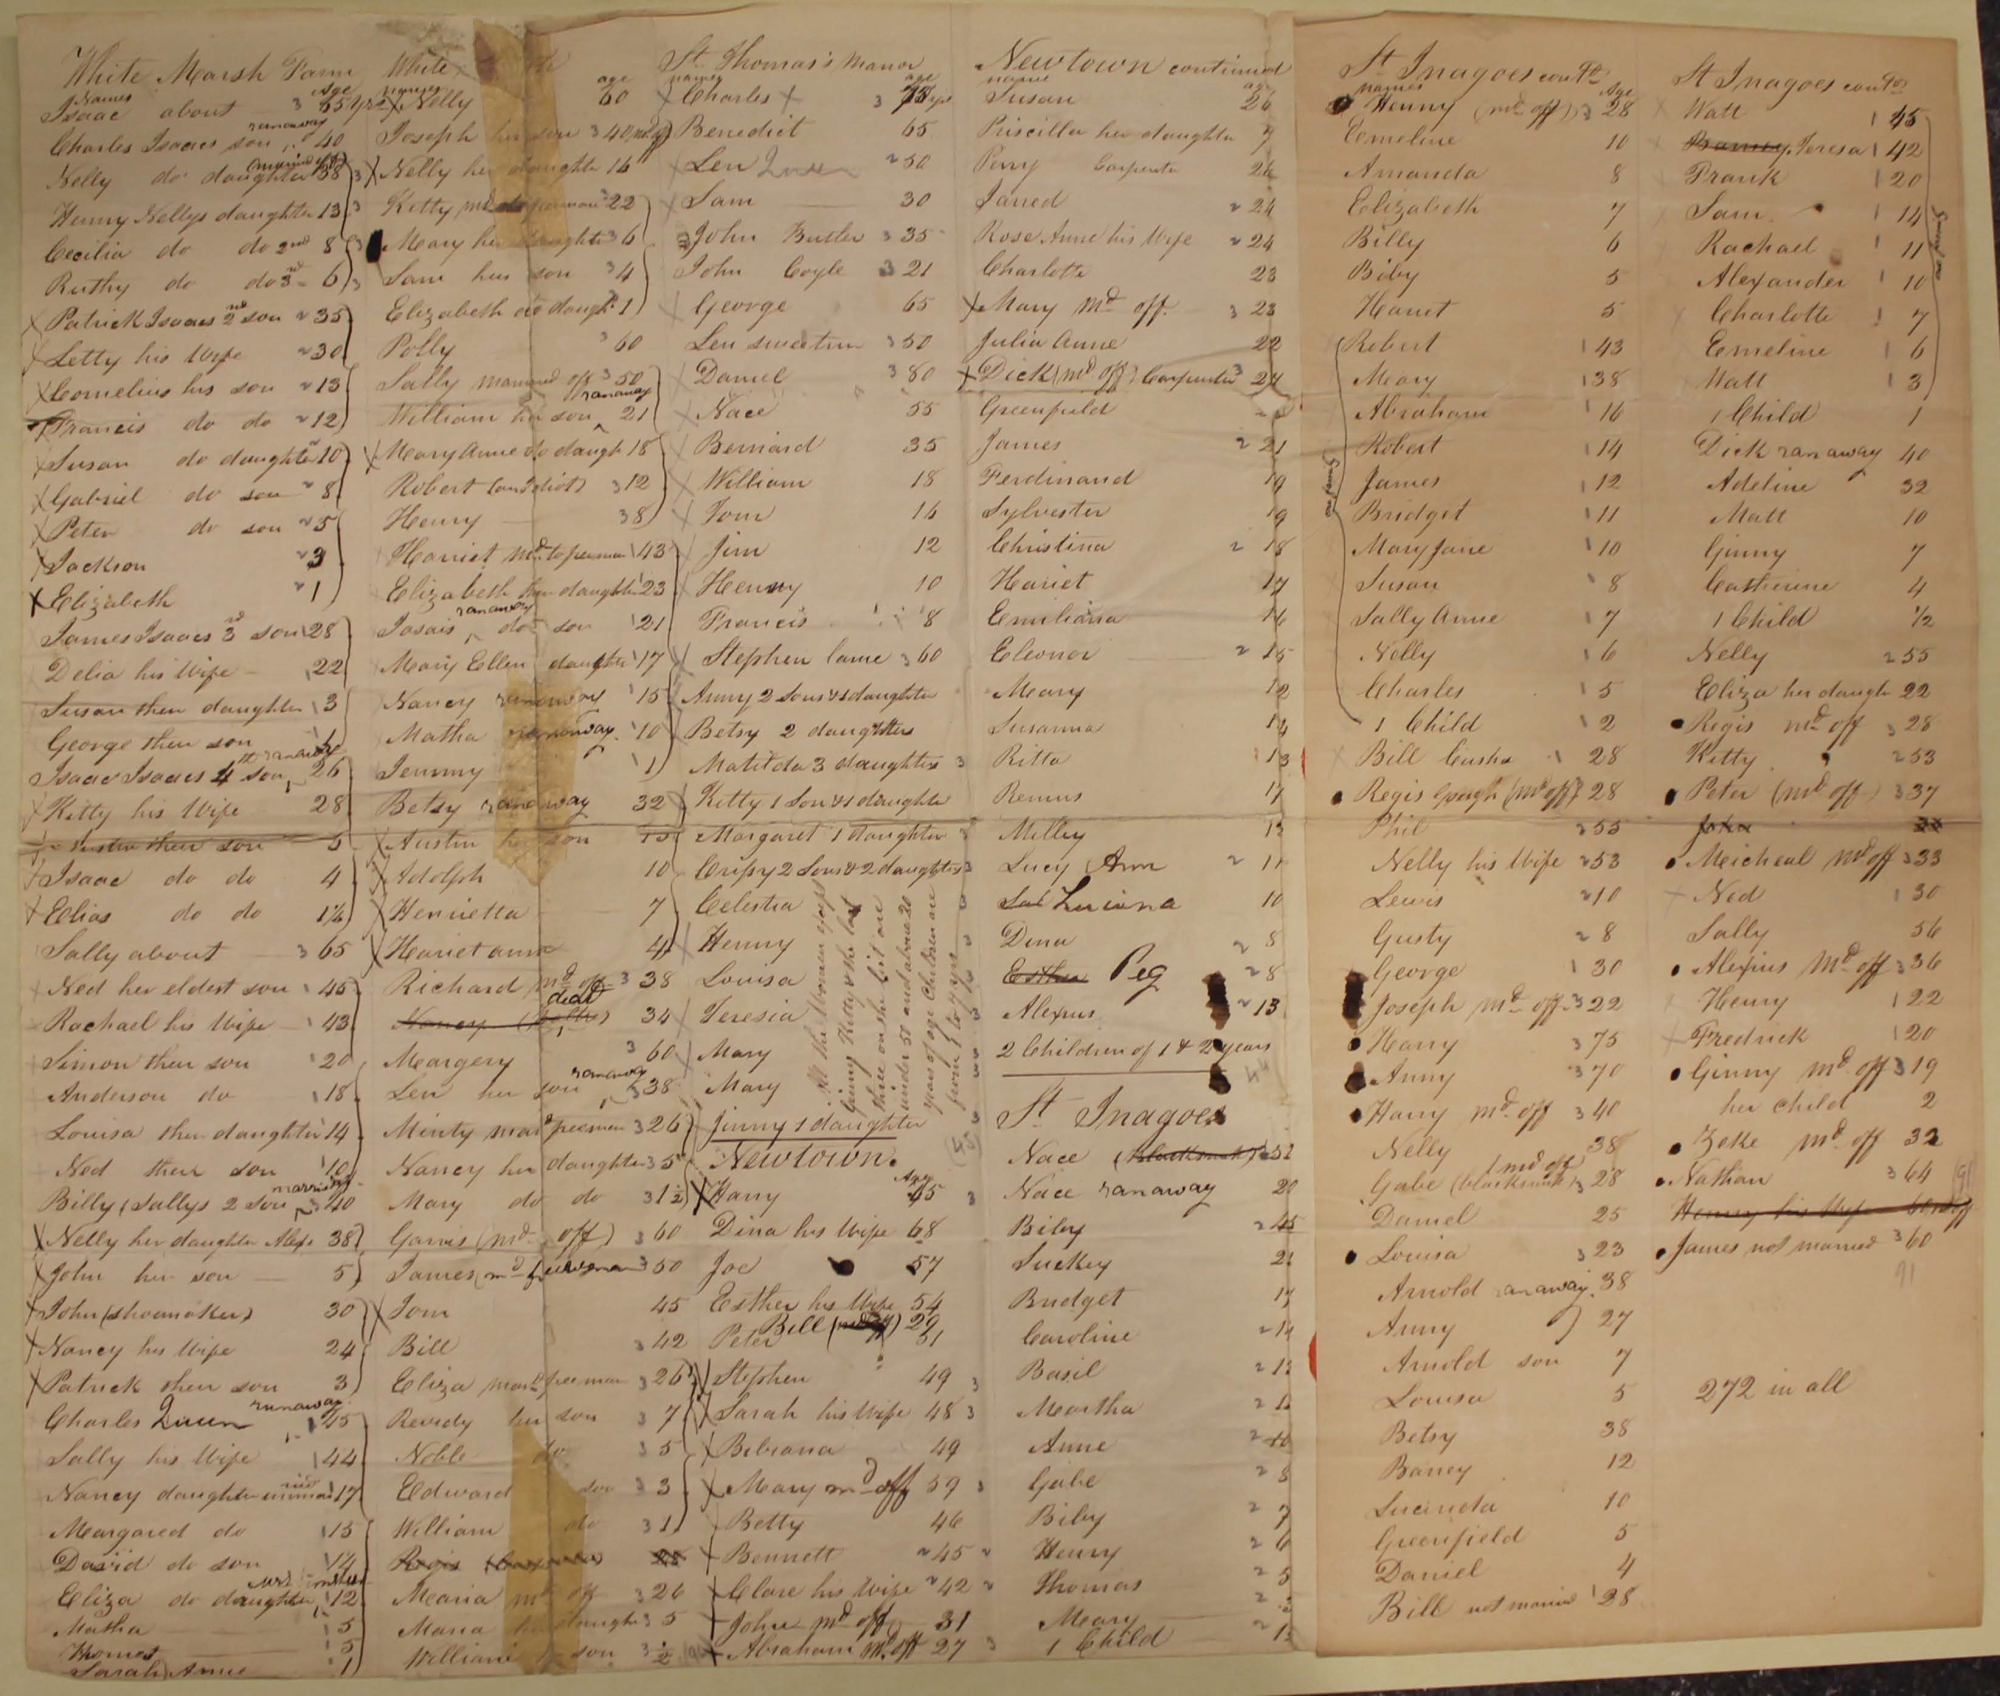 White Marsh Farm
Names Age
Isaac about 3 65 yrs
ranaway
Charles Isaacs son 40
Nelly do daughter 38 3
Henny Nellys daughter 13 3
Cecilia do do 2nd 8 3
Ruthy do do 3rd 6 3
Patrick Isaacs 2nd son 2 35
Letty his Wife 2 30
Cornelius his son 2 13
Francis do do 2 12
Susan do daughter 10
Gabriel do son 2 8
Peter do son 2 5
Jackson 2 3
Elizabeth 2 1
James Isaacs 3rd son 1 28
Delia his Wife 1 22
Susan their daughter 1 3
George their son
ranaway
Isaac Isaacs 4th son 26
Kitty his Wife 28
their son 5
Isaac do do 4
Elias do do 1½
Sally about 3 65
Ned her eldest son 1 45
Rachael his Wife 1 43
Simon their son 1 20
Anderson do 1 18
Louisa their daughter 1 14
Ned their son 1 10
Billy (Sallys 2 son 3 40
Nelly her daughter 38
John her son 5
John (shoemaker) 30
Nancy his Wife 24
Patrick their son 3
runaway
Charles Queen 1 45
Sally his Wife 1 44
Nancy daughter 1 17
Margared do 1 15
David do son 1 14
Eliza do daughter 1 12
Matha 1 5
Thomas 1 5
Sarah Anne 1
White
names age
Nelly 60
Joseph her son 3 40
Nelly her daughter 16
Kitty 22
Mary her daughter 3 6
Sam her son 3 4
Elizabeth do daugh 1
Polly 3 60
Sally married off 3 50
ranaway
William her son 21
Mary Anne do daugh 18
Robert (an Idiot) 3 12
Henny 3 8
Hariet md to freeman 1 43
Elizabeth her daughter 1 23
ranaway
Isaais do son 1 21
Mary Ellen daughter 1 17
Nancy runaway 1 15
Matha runaway 1 10
Jemmy 1 1
Betsy ranaway 32
Austin her son 15
Adolph 10
Henrietta 7
Harietann 4
Richard md off 3 38
dead
Nancy 34
Margery 3 60
ranaway
Len her son 3 38
Minty mard freeman 3 26
Nancy her daughter 3 5
Mary do do 3 1½
Garvis (md off) 3 60
James (md freewoman 3 50
Tom 45
Bill 3 42
Eliza mard freeman 3 26
Reverdy her son 3 7
Noble do 3 5
Edward son 3 3
William do 3 1
Regis
Maria md off 3 26
Maria her daugh 3 5
William son 3 ½
St. Thomas's Manor
names age
Charles 3 75 yrs
Benedict 65
Len Queen 2 50
Sam 30
John Butler 3 35
John Coyle 3 21
George 65
Len Sweetin 3 50
Daniel 3 80
Nace 55
Bernard 35
William 18
Tom 16
Jim 12
Henny 10
Francis 8
Stephen lame 3 60
Anny 2 Sons & 1 daughter
Betsy 2 daughters
Matilda 3 daughters 3
Kitty 1 Son & 1 daughter
Margaret 1 daughter
Crissy 2 Sons & 2 daughters
Celestia
Henny
Louisa
Teresia
Mary
Mary
Jinny 1 daughter
All the Women except
Ginny Kitty & the last
three on the list are
under 50 and above 20
years of age Children are
from 1 to 9 yrs
Newtown.
Age
Harry 65 3
Dina his wife 68
Joe 57
Esther his Wife 54
Bill 29
Peter 51
Stephen 49 3
Sarah his Wife 48 3
Bibiana 49
Mary md off 59 3
Betty 46
Bennett 2 45 2
Clare his Wife 2 42 2
John md off 31
Abraham md off 27 3
Newtown continued
name age
Susan 26
Priscilla her daughter 7
Perry Carpenter 26
Jarred 2 24
Rose Anne his Wife 2 24
Charlotte 23
Mary md off 3 23
Julia Anne 22
Dick (md off) Carpenter 3 24
Greenfield
James 2 21
Ferdinand 19
Sylvester 19
Christina 2 18
Hariet 17
Emiliana 16
Eleonor 2 15
Mary 12
Susanna 14
Ritta 13
Remus 17
Milley 13
Lucy Ann 2 11
Luciana 10
Dina 2 8
Esther Peg 2 8
Alexius 2 13
2 Children of 1 & 2 years
St Inagoes
Nace (blacksmith) 52
Nace ranaway 20
Biby 2 45
Suckey 21
Bridget 17
Caroline 2 14
Basil 2 13
Martha 2 12
Anne 2 10
Gabe 2 8
Biby 2 7
Henny 2 6
Thomas 2 5
Mary 2
1 Child 2
St Inagoes contd
names Age
Henny (md off) 3 28
Emeline 10
Amanda 8
Elizabeth 7
Billy 6
Biby 5
Hariet 5
Robert 1 43
Mary 1 38
Abraham 1 16
Robert 1 14
James 1 12
Bridget 1 11
Mary Jane 1 10
Susan 1 8
Sally Anne 1 7
Nelly 1 6
Charles 1 5
1 Child 1 2
one family
Bill Cush 1 28
Regis Gough (md off) 28
Phil 2 55
Nelly his Wife 2 53
Lewis 2 10
Gusty 2 8
George 1 30
Joseph md off 3 22
Harry 3 75
Anny 3 70
Harry md off 3 40
Nelly 38
(md off)
Gabe (blacksmith) 3 28
Daniel 25
Louisa 3 23
Arnold ranaway 38
Anny 27
Arnold son 7
Louisa 5
Betsy 38
Baney 12
Lucinda 10
Greenfield 5
Daniel 4
Bill not married 1 28
St Inagoes contd
Watt 1 45
Barney Teresa 1 42
Frank 1 20
Sam 1 14
Rachael 1 11
Alexander 1 10
Charlotte 1 7
Emeline 1 6
Matt 1 3
one family
1 Child 1
Dick ranaway 40
Adeline 32
Matt 10
Ginny 7
Catherine 4
1 Child ½
Nelly 2 55
Eliza her daugh 22
Regis md off 3 28
Kitty 2 53
Peter (md off) 3 37
John
Meicheal md off 3 33
Ned 1 30
Sally 56
Alexius md off 3 36
Henny 1 22
Fredrick 1 20
Ginny md off 3 19
her child 2
Zeke md off 32
Nathan 3 64
Henny his Wife
James not married 3 60
91
272 in all